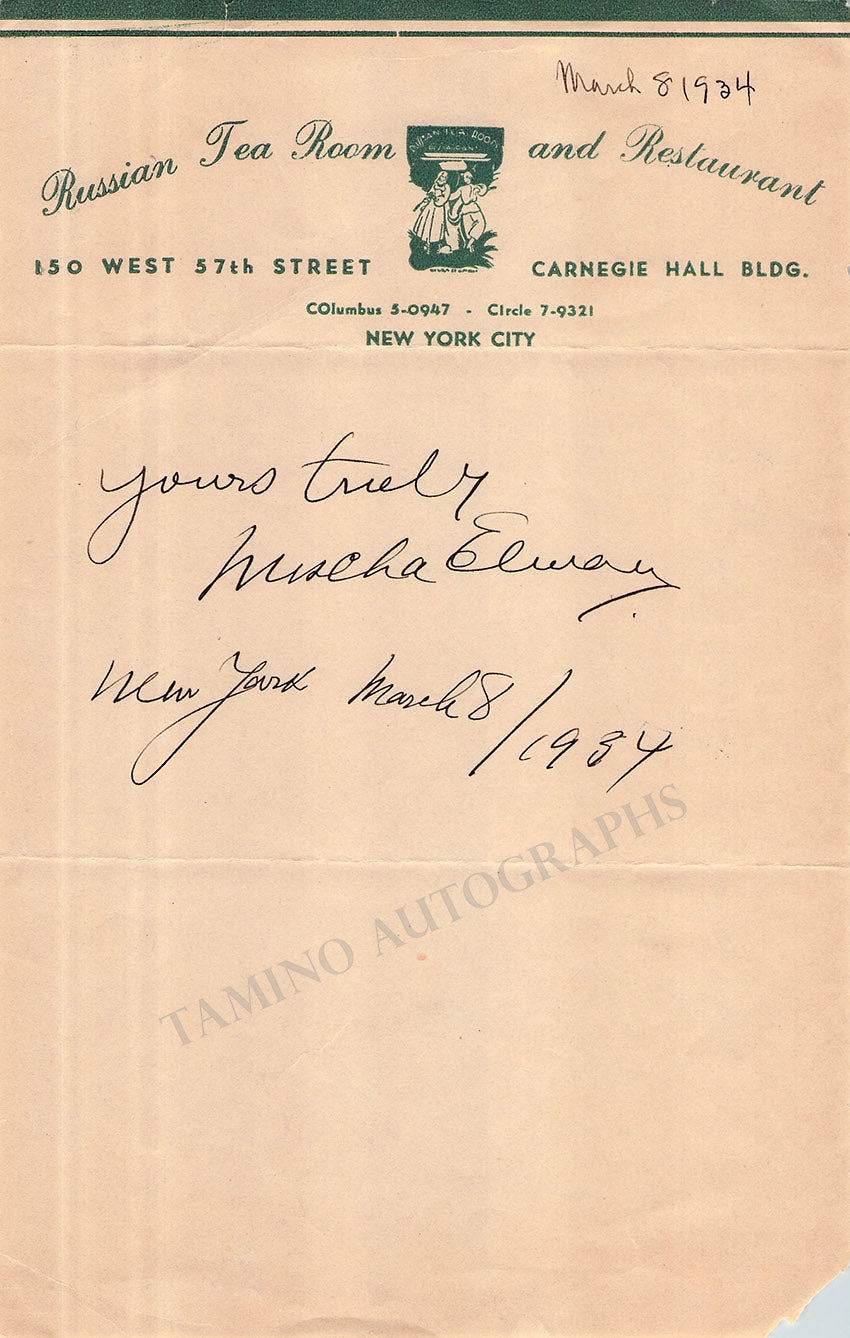 March 8 1934
Russian Tea Room and Restaurant
RUSSIAN TEA ROOM
RESTAURANT
150 WEST 57th STREET CARNEGIE HALL BLDG.
COlumbus 5-0947 - CIrcle 7-9321
NEW YORK CITY
Yours truly
Mischa Elman
New York March 8/1934
TAMINO AUTOGRAPHS